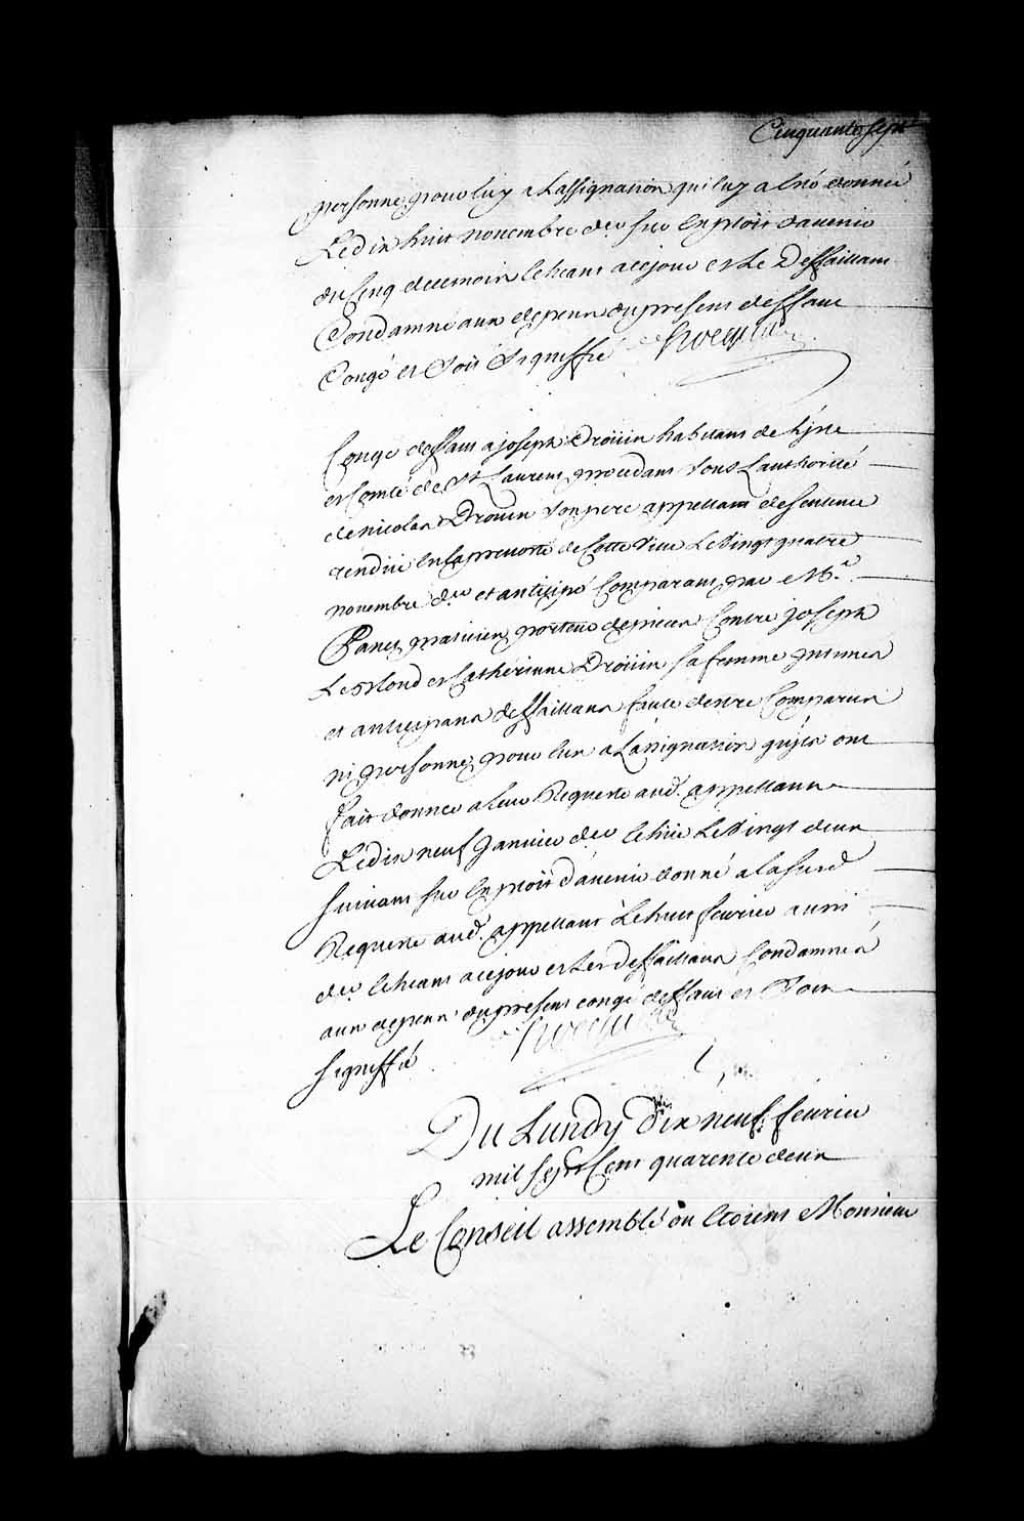 Cinquante sept
personne pour luy a Lassignation qui luy a été donnée
Le dix huit novembre der sur Exploit davenir
du cinq decembre echeant a ce jour et Le Deffaillant
Condamné aux depens du present deffaut
Congé et soit signiffié
Congé deffaut a joseph Droüin habitant de L'isle
et Comté de St Laurent procedant sous Lauthorité
de nicolas Droüin son pere appellant de sentence
rendüe En la prevosté de Cette Ville Le Vingt quatre
novembre der et anticipé Comparant par Me
Panet praticien porteur de pieces Contre joseph
Le blond et Catherinne Droüin sa femme intimés
et anticipans deffaillans faute d'estre Comparus
ni personne pour Eux a L'assignation qu'ils ont
fait donner a leur Requeste aud. appellant
Le dix neuf Janvier der echüe Le Vingt deux
suivant sur Exploit d'avenir donné a la susd
Requeste aud. appellant Le huit fevrier aussi
der echeant a ce jour et Les deffaillans Condamnés
aux depens du present congé deffaut et soit
signiffié
Du Lundy dix neuf fevrier
mil sept Cent quarente deux
Le Conseil assemblé ou Etoient Monsieur